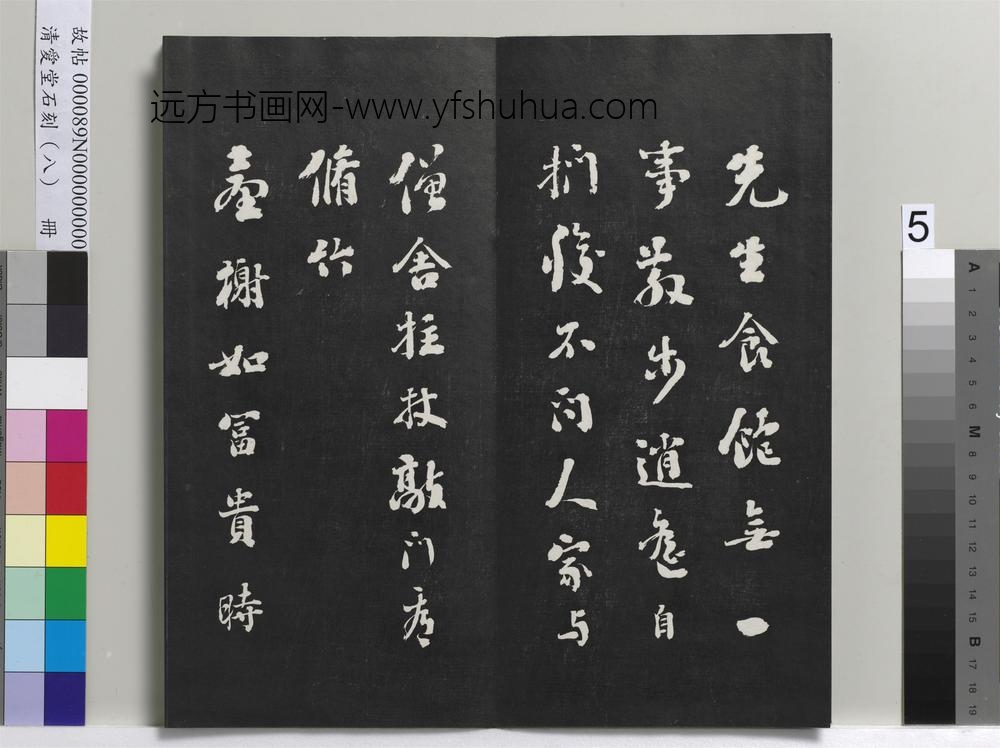 先生食飽無一
事散步逍遙自
捫腹不問人家与
僧舍拄杖敲门看
脩竹
臺榭如冨貴時
远方书画网-www.yfshuhua.com
故帖 000089N000000000
清愛堂石刻(八) 冊
5
A 1 2 3 4 5 6 M 8 9 10 11 12 13 14 15 B 17 18 19